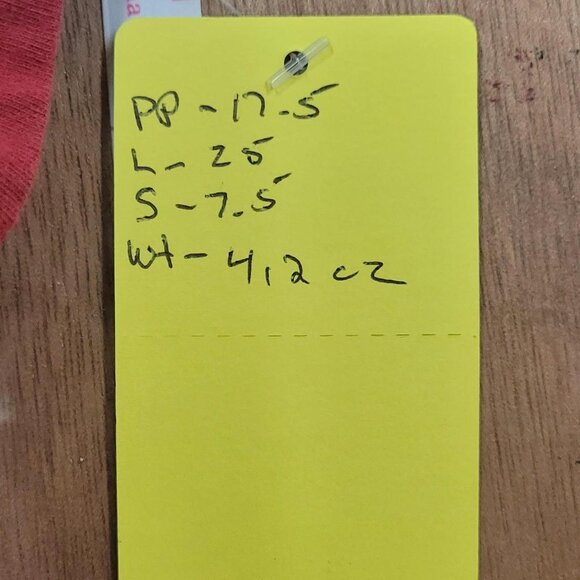 PP - 17.5
L - 25
S - 7.5
Wt - 4,2 oz